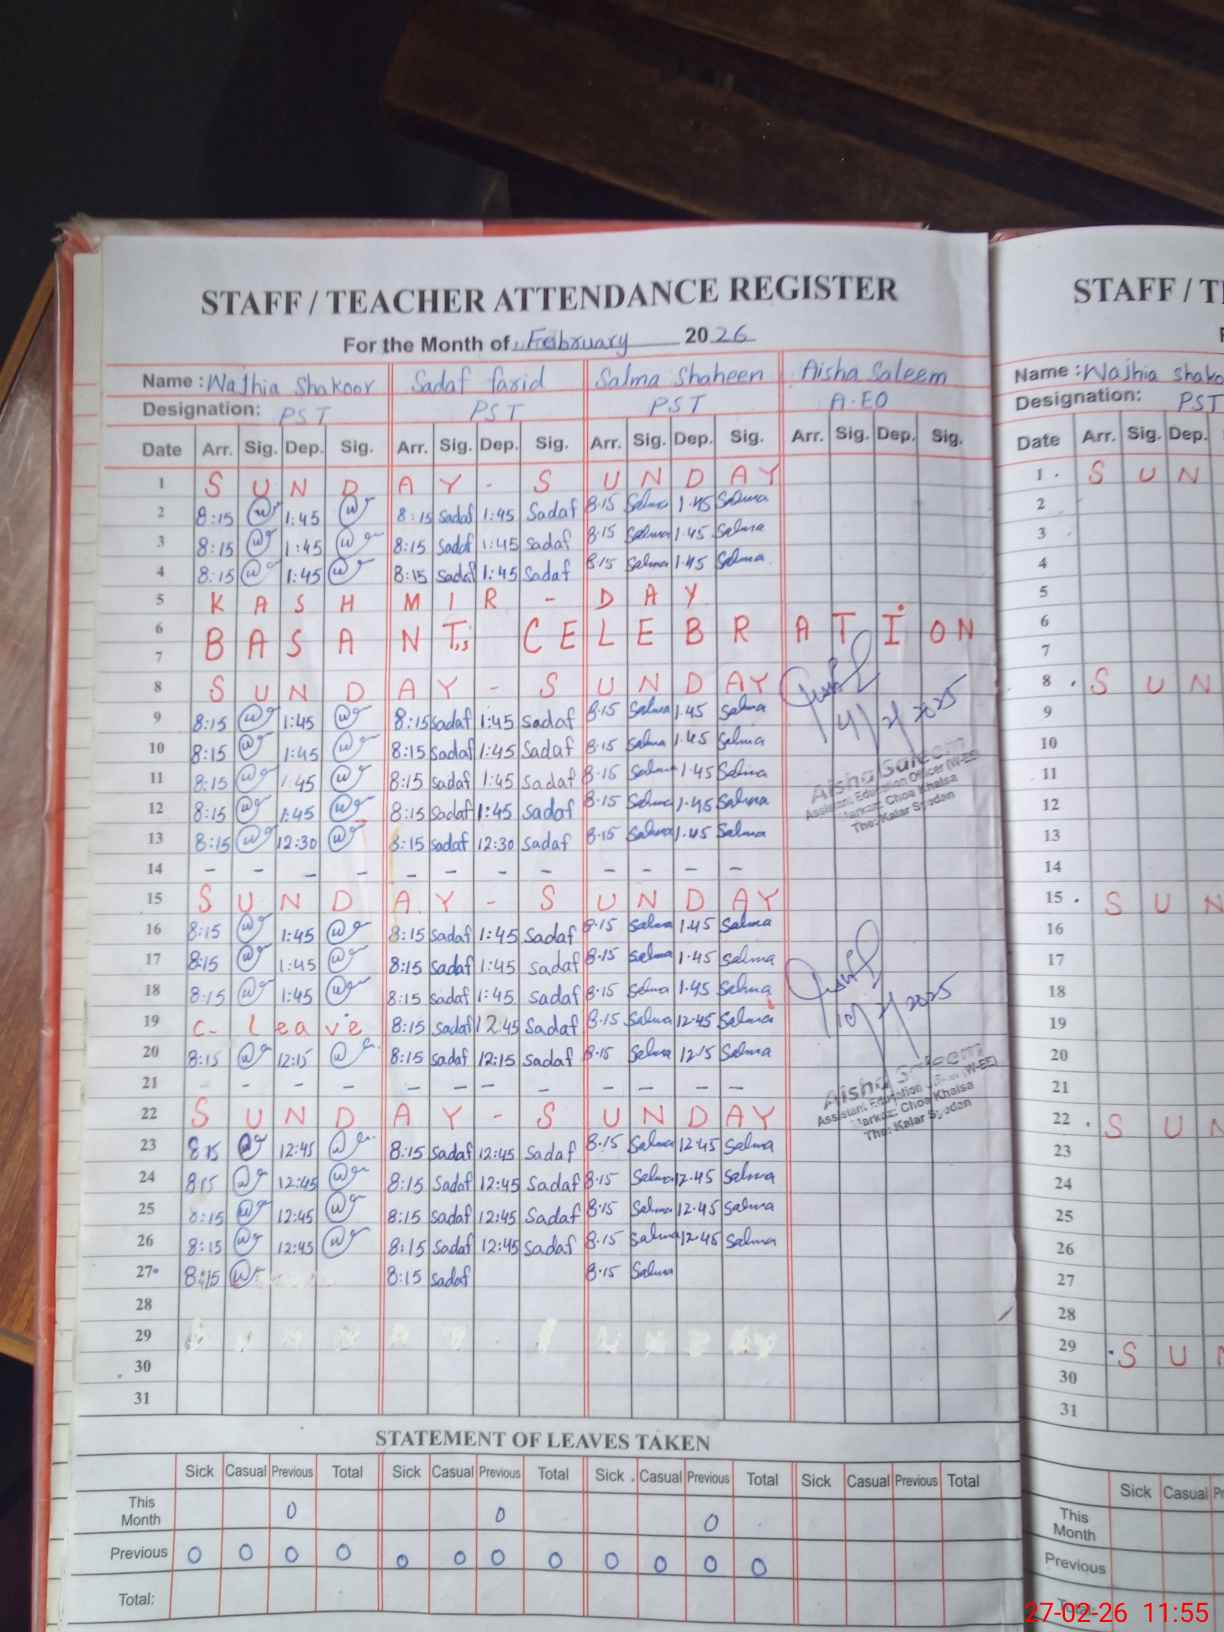 STAFF / TEACHER ATTENDANCE REGISTER
For the Month of February 2026
Name : Wajhia Shakoor Sadaf farid Salma Shaheen Aisha Saleem
Designation: PST PST PST A.EO
Date Arr. Sig. Dep. Sig. Arr. Sig. Dep. Sig. Arr. Sig. Dep. Sig. Arr. Sig. Dep. Sig.
1 S U N D A Y - S U N D A Y
2 8:15 1:45 8:15 Sadaf 1:45 Sadaf 8.15 Salma 1.45 Salma
3 8:15 1:45 8:15 Sadaf 1:45 Sadaf 8.15 Salma 1.45 Salma
4 8:15 1:45 8:15 Sadaf 1:45 Sadaf 8.15 Salma 1.45 Salma
5 K A S H M I R - D A Y
6 B A S A N T,, C E L E B R A T I O N
7
8 S U N D A Y - S U N D A Y
9 8:15 1:45 8:15 sadaf 1:45 sadaf 8.15 Salma 1.45 Salma
10 8:15 1:45 8:15 sadaf 1:45 Sadaf 8.15 Salma 1.45 Salma
11 8:15 1:45 8:15 sadaf 1:45 sadaf 8.15 Salma 1.45 Salma
12 8:15 1:45 8:15 Sadaf 1:45 sadaf 8.15 Salma 1.45 Salma
13 8:15 12:30 8:15 sadaf 12:30 sadaf 8.15 Salma 1.45 Salma
14 - - - - - - - - - - - -
15 S U N D A Y - S U N D A Y
16 8:15 1:45 8:15 sadaf 1:45 Sadaf 8.15 Salma 1.45 Salma
17 8:15 1:45 8:15 sadaf 1:45 sadaf 8.15 Salma 1.45 Salma
18 8:15 1:45 8:15 sadaf 1:45 sadaf 8.15 Salma 1.45 Salma
19 C- l e a v e 8:15 sadaf 12 45 Sadaf 8.15 Salma 12.45 Salma
20 8:15 12:15 8:15 sadaf 12:15 sadaf 8.15 Salma 12.15 Salma
21 - - - - - - - - - - - -
22 S U N D A Y - S U N D A Y
23 8:15 12:45 8:15 Sadaf 12:45 Sadaf 8.15 Salma 12.45 Salma
24 8:15 12:45 8:15 Sadaf 12:45 Sadaf 8.15 Salma 12.45 Salma
25 8:15 12:45 8:15 Sadaf 12:45 Sadaf 8.15 Salma 12.45 Salma
26 8:15 12:45 8:15 Sadaf 12:45 sadaf 8.15 Salma 12.45 Salma
27 8:15 8:15 sadaf 8.15 Salma
28
29
30
31
14/2/2025
Aisha Saleem
Assistant Education Officer (W-EE)
Markaz Choa Khalsa
The: Kalar Syedan
19/2/2025
Aisha Saleem
Assistant Education Officer (W-EE)
Markaz Choa Khalsa
The: Kalar Syedan
STATEMENT OF LEAVES TAKEN
Sick Casual Previous Total Sick Casual Previous Total Sick Casual Previous Total Sick Casual Previous Total
This Month 0 0 0
Previous 0 0 0 0 0 0 0 0 0 0 0 0
Total:
STAFF / T
Name : Wajhia Shako
Designation: PST
Date Arr. Sig. Dep.
1 S U N
2
3
4
5
6
7
8 S U N
9
10
11
12
13
14
15 S U N
16
17
18
19
20
21
22 S U N
23
24
25
26
27
28
29 S U N
30
31
Sick Casual Pr
This Month
Previous
Total:
27-02-26 11:55